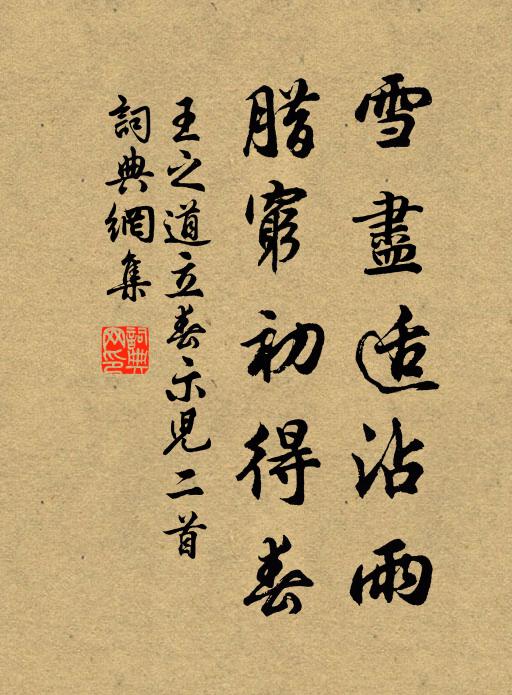 雪盡适沾雨
腊窮初得春
王之道立春示児二首
詞典網集
詞典網印